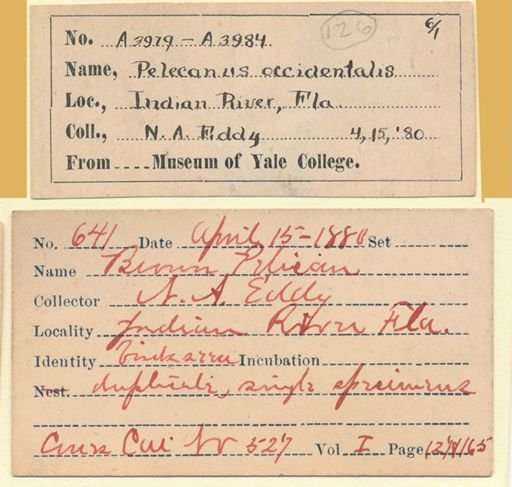 126
6/1
No. A3979 – A3984
Name, Pelecanus occidentalis
Loc., Indian River, Fla.
Coll., N. A. Eddy 4,15,'80
From Museum of Yale College.
No. 641 Date April 15-1880 Set
Name Brown Pelican
Collector N. A. Eddy
Locality Indian River Fla.
Identity Birds seen Incubation
Nest. duplicate, single specimens
527 Vol I Page